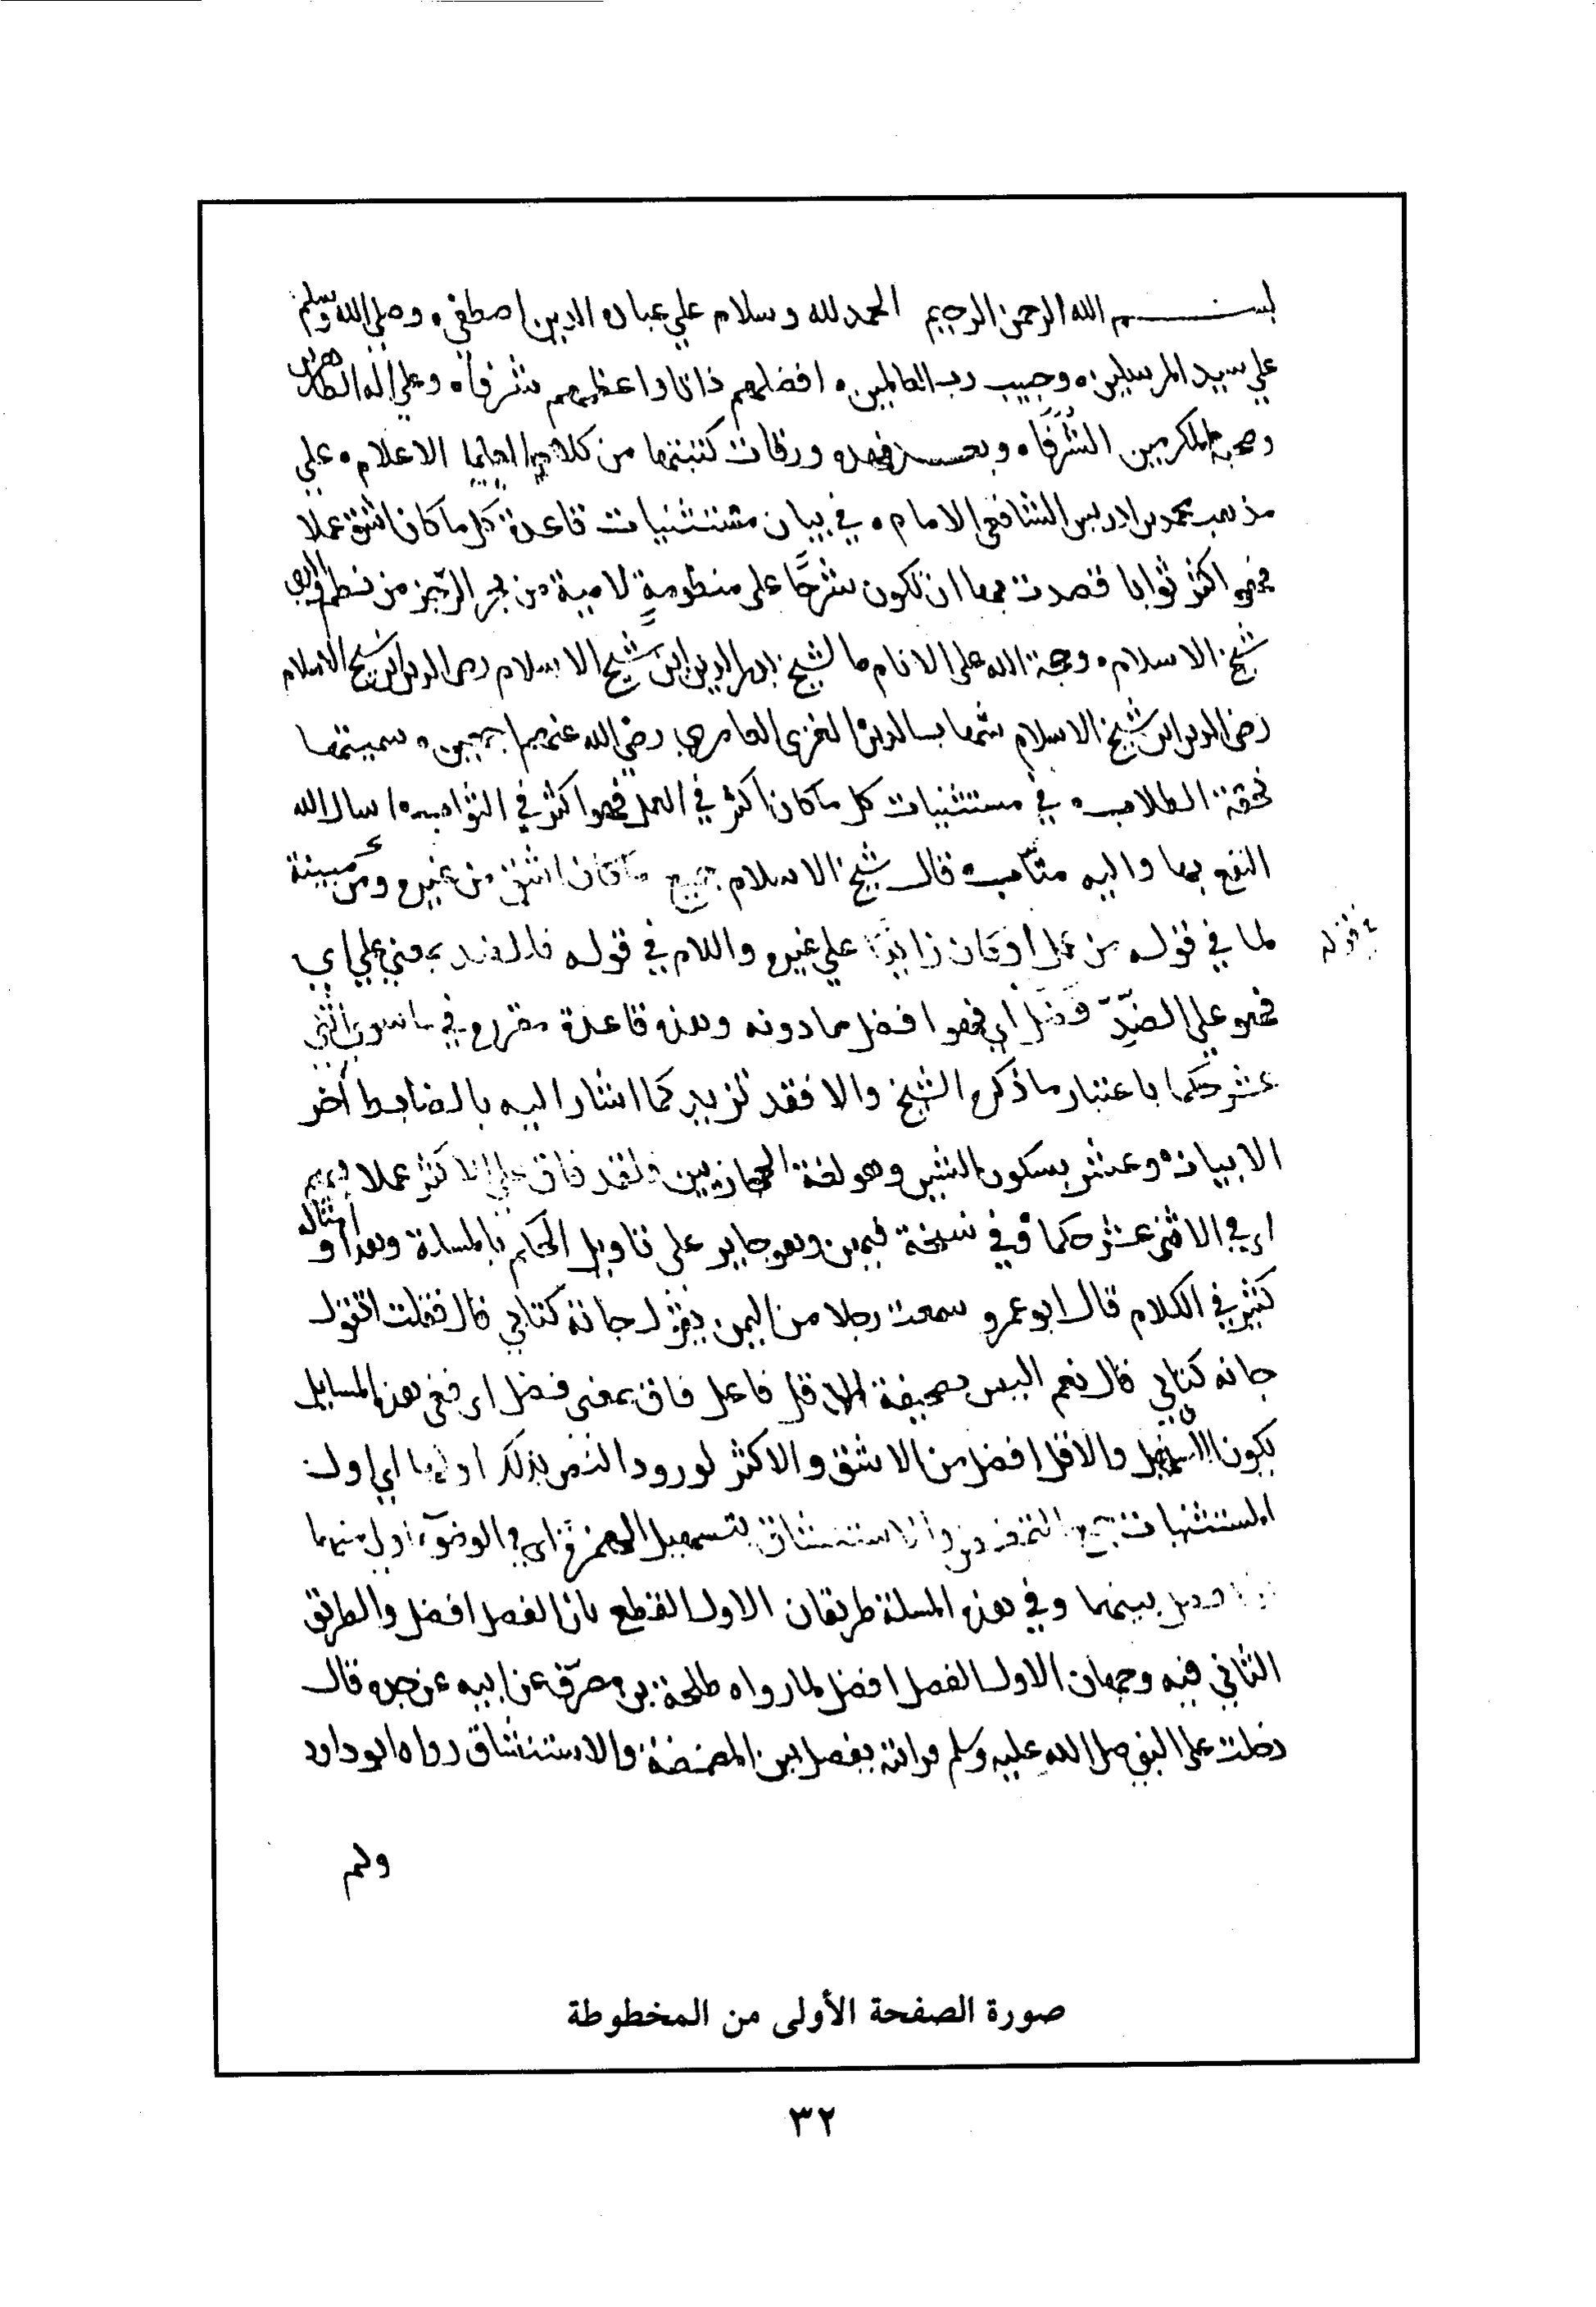 بسم الله الرحمن الرحيم الحمد لله وسلام علي عباده الدين اصطفي وصلي الله وسلم
علي سيد المرسلين وحبيب رب العالمين افضلهم ذاتا واعظمهم شرفا وعلي اله الطاهرين
وصحبه المكرمين الشرفا وبعد فهذه ورقات كتبتها من كلام العلما الاعلام علي
مذهب محمد بن ادريس الشافعي الامام في بيان مستثنيات قاعدة كل ما كان اشق عملا
فهو اكثر ثوابا قصدت بها ان تكون شرحًا على منظومةٍ لامية من بحر الرجز من نظم
شيخ الاسلام وحجة الله على الانام الشيخ بدر الدين ابن شيخ الاسلام رضى الدين ابن شيخ الاسلام
رضى الدين ابن شيخ الاسلام شهاب الدين الغزى العامرى رضي الله عنهم اجمعين وسميتها
تحفة الطلاب في مستثنيات كل ما كان اكثر في العمل فهو اكثر في الثواب اسال الله
النفع بها واليه متاب قال شيخ الاسلام جميع ما كان اشق من غيره ومن مبينة
لما في قوله من عمل او كان زايدًا علي غيره واللام في قوله فللضد بمعني علي اي
في قوله
فهو علي الضِّدّ فَضَل اي فهو افضل مما دونه وهذه قاعدة مقررة في ما سوى اثني
عشر حكما باعتبار ما ذكره الشيخ والا فقد تزيد كما اشار اليه بالضابط آخر
الابيات وعشر بسكون الشين وهو لغة الحجازيين فلقد فاق علي الاكثر عملا بهم
اي في الاثنى عشر حكما وفي نسخة فيهن وهو جايز على تاويل الحكم بالمسالة وهذا وامثاله
كثير في الكلام قال ابو عمرو سمعت رجلا من اليمن يقول جاته كتابي قال فقلت اتقول
جاته كتابي قال نعم اليس صحيفة الاقل فاعل فاق بمعنى فضل اي ففى هذه المسايل
يكون الاسهل والاقل افضل من الاشق والاكثر لورود النص بذلك اولها اي اول
المستثنيات جمع التمضمض والاستنشاق بتسهيل الهمزة اي في الوضوء اولى منهما
بينهما وفي هذه المسلة طريقان الاول القطع بان الفصل افضل والطريق
الثاني فيه وجهان الاول الفصل افضل لما رواه طلحة بن مصرّف عن ابيه عن جده قال
دخلت على النبي صلى الله عليه وسلم فرايته يفصل بين المضمضة والاستنشاق رواه ابو داود
ولم
صورة الصفحة الأولى من المخطوطة
٣٢